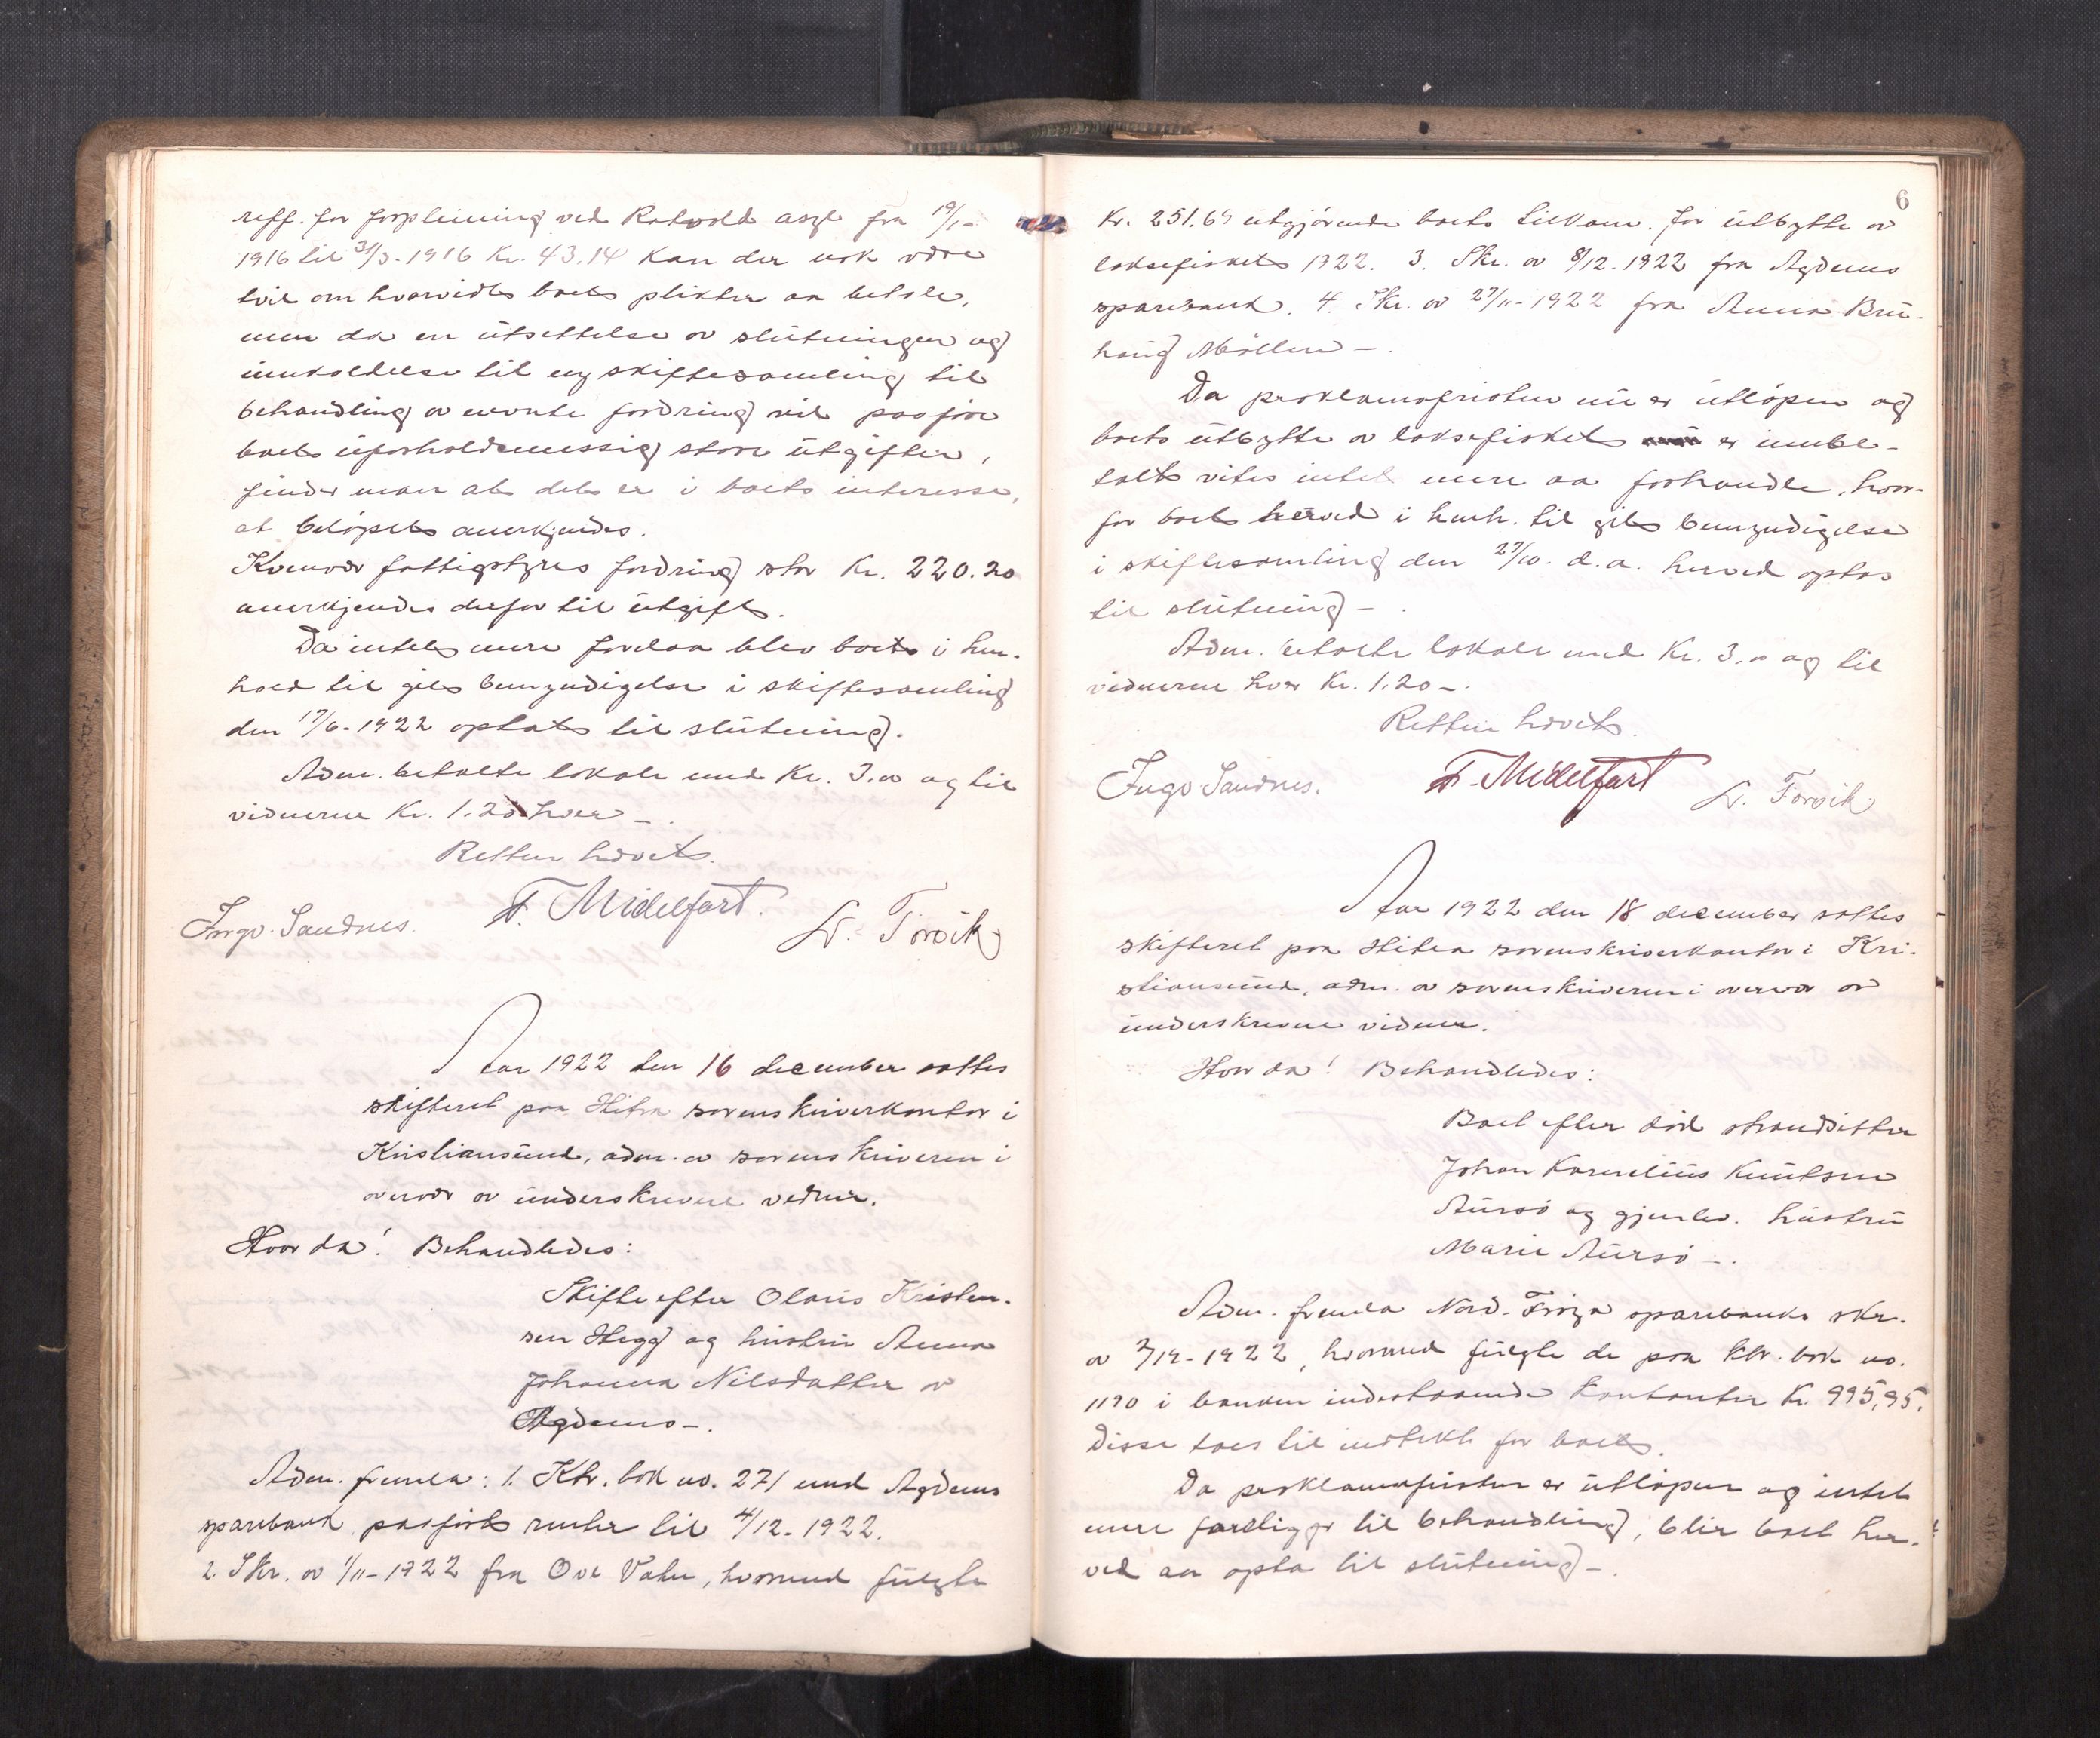 reff. for forpleining ved Rotvold asyl fra 19/1-
1916 til 31/3-1916 Kr. 43.14 kan der nok være
tvil om hvorvidt boet plikter aa betale,
men da en utsettelse av slutningen og
innkaldelse til ny skiftesamling til
behandling av nevnte fordring vil paaføre
boet uforholdsmessig store utgifter,
finder man at det er i boets interesse,
at beløpet anerkjendes.
Kvenvær fattigstyres fordring stor Kr. 220.20
anerkjendes derfor til utgift.
Da intet mere forelaa blev boet i hen-
hold til git bemyndigelse i skiftesamling
den 17/6-1922 optat til slutning.
Adm. betalte lokale med Kr. 3.00 og til
vidnerne Kr. 1.20 hver -.
Retten hævet.
Inga Sandnes. F. Midelfart. L. Torvik
Aar 1922 den 16 december sattes
skifteret paa Hitra sorenskriverkontor i
Kristiansund, adm. av sorenskriveren i
overvær av underskrevne vidner.
Hvor da! Behandledes:
Skifte efter Olaus Kristen-
sen Hegg og hustru Anna
Johanna Nilsdatter av
Agdenes -.
Adm. fremla: 1. Ktr. bok no. 271 med Agdenes
sparebank paaført renter til 4/12-1922.
2. Skr. av 1/11-1922 fra Ove Vaten, hvormed fulgte
6
Kr. 251.64 utgjørende boets tilkom. for utbytte av
laksefisket 1922. 3. Skr. av 8/12-1922 fra Agdenes
sparebank. 4. Skr. av 27/11-1922 fra Anna Bru-
haug Møllen -.
Da proklamafristen nu er utløpen og
boets utbytte av laksefisket er innbe-
talt vites intet mere aa forhandle, hvor-
for boet herved i henh. til git bemyndigelse
i skiftesamling den 27/10. d.a. herved optas
til slutning -.
Adm. betalte lokale med Kr. 3.00 og til
vidnerne hver Kr. 1.20 -.
Retten hævet.
Inga Sandnes. F. Midelfart L. Torvik
Aar 1922 den 18 december sattes
skifteret paa Hitra sorenskriverkontor i Kri-
stiansund, adm. av sorenskriveren i overvær av
underskrevne vidner.
Hvor da! Behandledes:
Boet efter død strandsitter
Johan Kornelius Knutsen
Aursø og gjenlev. hustru
Marie Aursø -.
Adm. fremla Nord-Frøya sparebanks skr.
av 2/12-1922, hvormed fulgte de paa ktr. bok no.
1190 i banken indestaaende kontanter Kr. 995,95.
Disse toes til indtekt for boet.
Da proklamafristen er utløpen og intet
mere foreligger til behandling, blir boet her-
ved aa opta til slutning -.